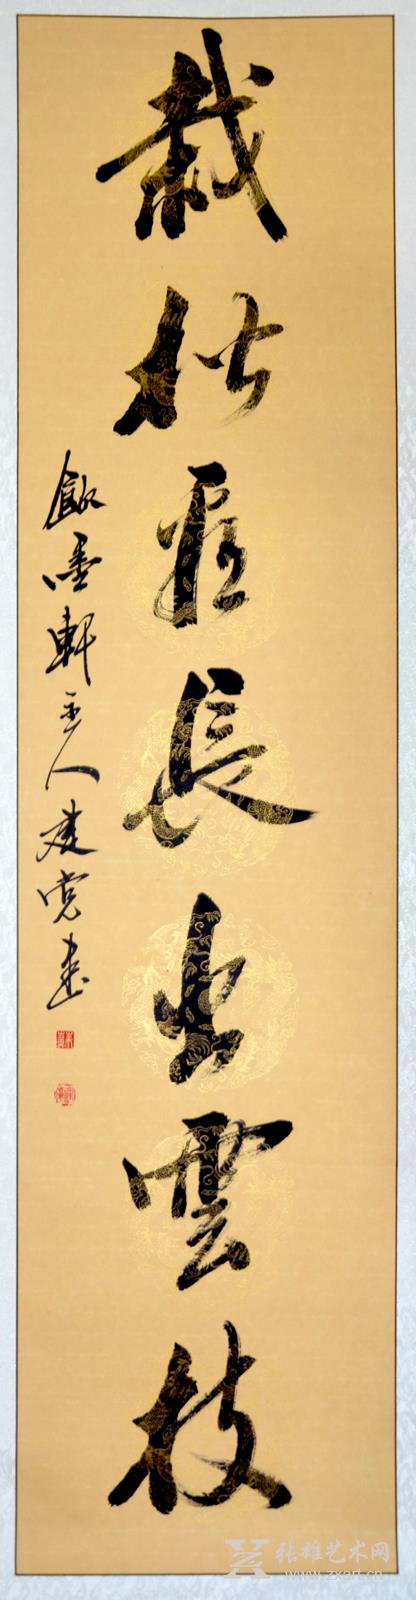 栽松應長出雲枝
飲墨軒主人建党書
张雄艺术网
www.zxart.cn